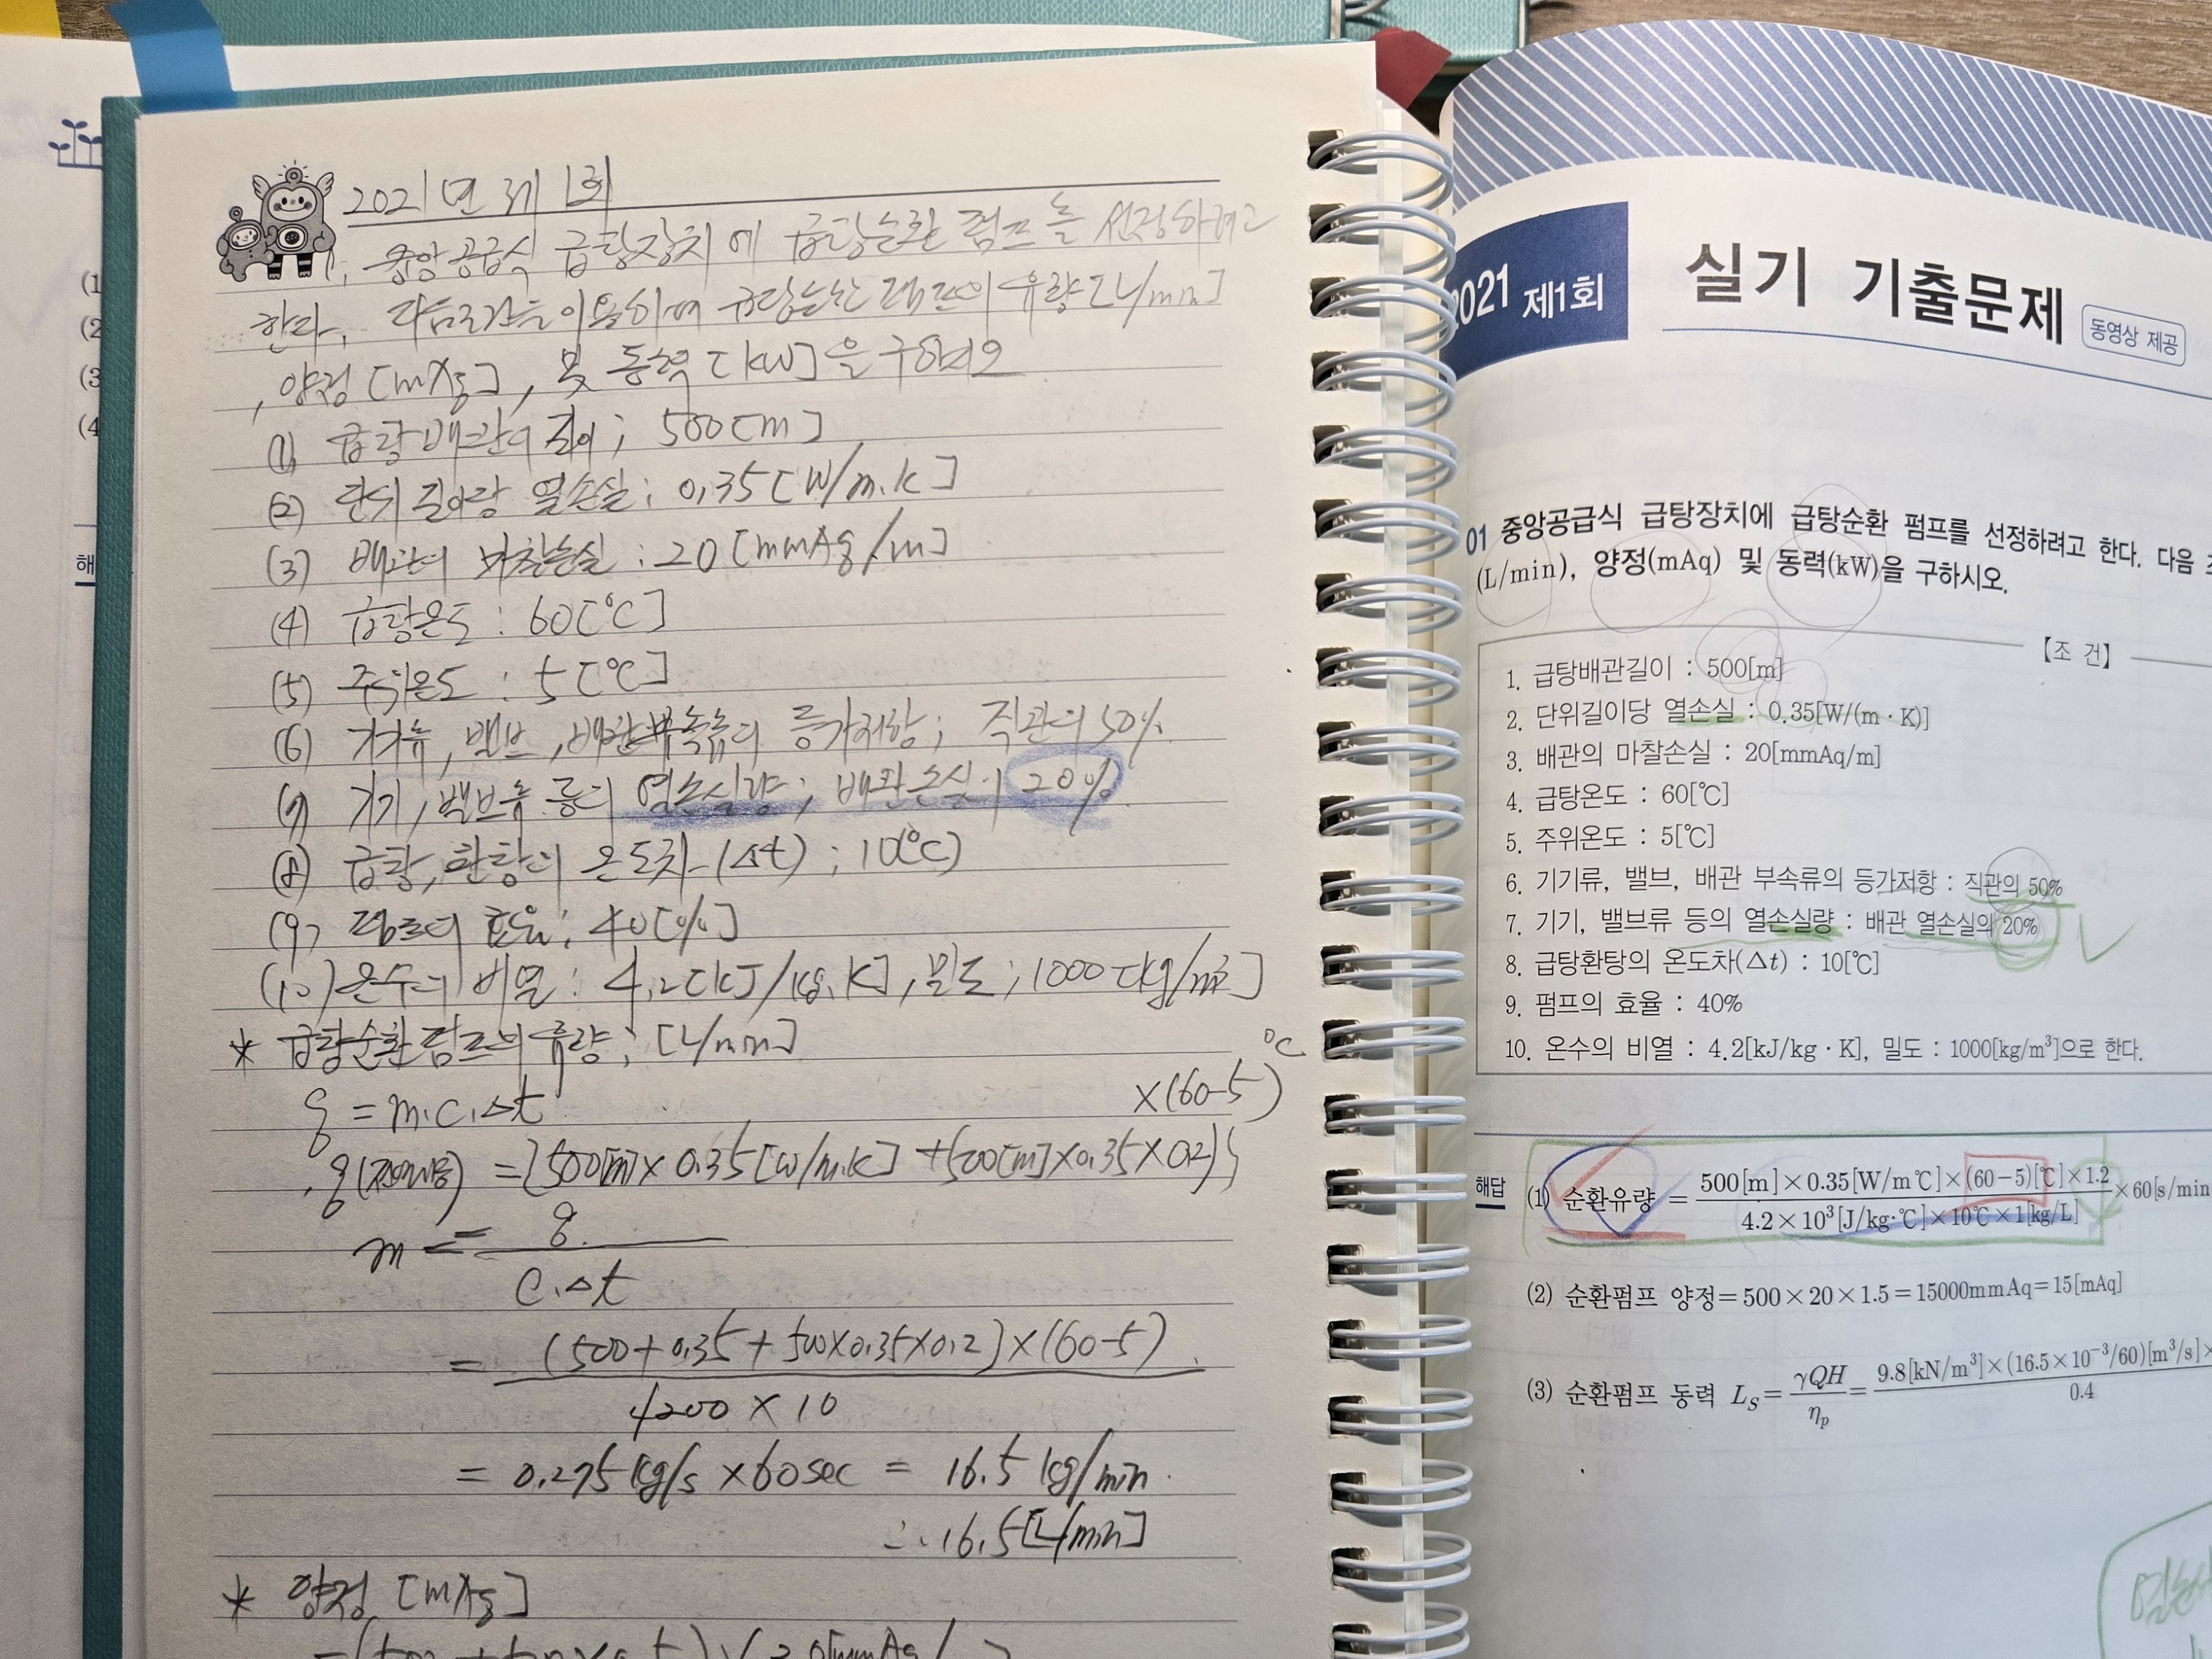 (1
(2
(3
(4
해
2021년 제 1회
1. 중앙공급식 급탕장치에 급탕순환 펌프를 선정하려고
한다. 다음조건을 이용하여 급탕순환 펌프의 유량[L/min]
, 양정[mAq], 및 동력[kW]을 구하시오
(1) 급탕배관의 길이; 500[m]
(2) 단위 길이당 열손실; 0.35[W/m.K]
(3) 배관의 마찰손실 : 20[mmAq/m]
(4) 급탕온도 : 60[℃]
(5) 주위온도 : 5[℃]
(6) 기기류, 밸브, 배관부속류의 등가저항; 직관의 50%
(7) 기기, 밸브류 등의 열손실량; 배관손실의 20%
(8) 급탕, 환탕의 온도차(Δt); 10(℃)
(9) 펌프의 효율; 40[%]
(10) 온수의 비열: 4.2[kJ/kg.K], 밀도; 1000[kg/m³]
* 급탕순환펌프의 유량; [L/min]
q = m.c.Δt
×(60-5) ℃
= [500[m]×0.35[W/m.K] +500[m]×0.35×0.2)
m = q
c.Δt
= (500+0.35+500×0.35×0.2)×(60-5)
4200×10
= 0.275 kg/s ×60sec = 16.5 kg/min.
∴ 16.5[L/min]
* 양정 [mAq]
2021 제1회
실기 기출문제
동영상 제공
01 중앙공급식 급탕장치에 급탕순환 펌프를 선정하려고 한다. 다음
(L/min), 양정(mAq) 및 동력(kW)을 구하시오.
【조 건】
1. 급탕배관길이 : 500[m]
2. 단위길이당 열손실 : 0.35[W/(m·K)]
3. 배관의 마찰손실 : 20[mmAq/m]
4. 급탕온도 : 60[℃]
5. 주위온도 : 5[℃]
6. 기기류, 밸브, 배관 부속류의 등가저항 : 직관의 50%
7. 기기, 밸브류 등의 열손실량 : 배관 열손실의 20%
8. 급탕환탕의 온도차(Δt) : 10[℃]
9. 펌프의 효율 : 40%
10. 온수의 비열 : 4.2[kJ/kg·K], 밀도 : 1000[kg/m³]으로 한다.
해답
(1) 순환유량 = 500[m]×0.35[W/m℃]×(60-5)[℃]×1.2 ×60[s/min
4.2×10³[J/kg·℃]×10℃×1[kg/L]
(2) 순환펌프 양정=500×20×1.5=15000mmAq=15[mAq]
(3) 순환펌프 동력 Ls= γQH = 9.8[kN/m³]×(16.5×10⁻³/60)[m³/s]×
ηp 0.4